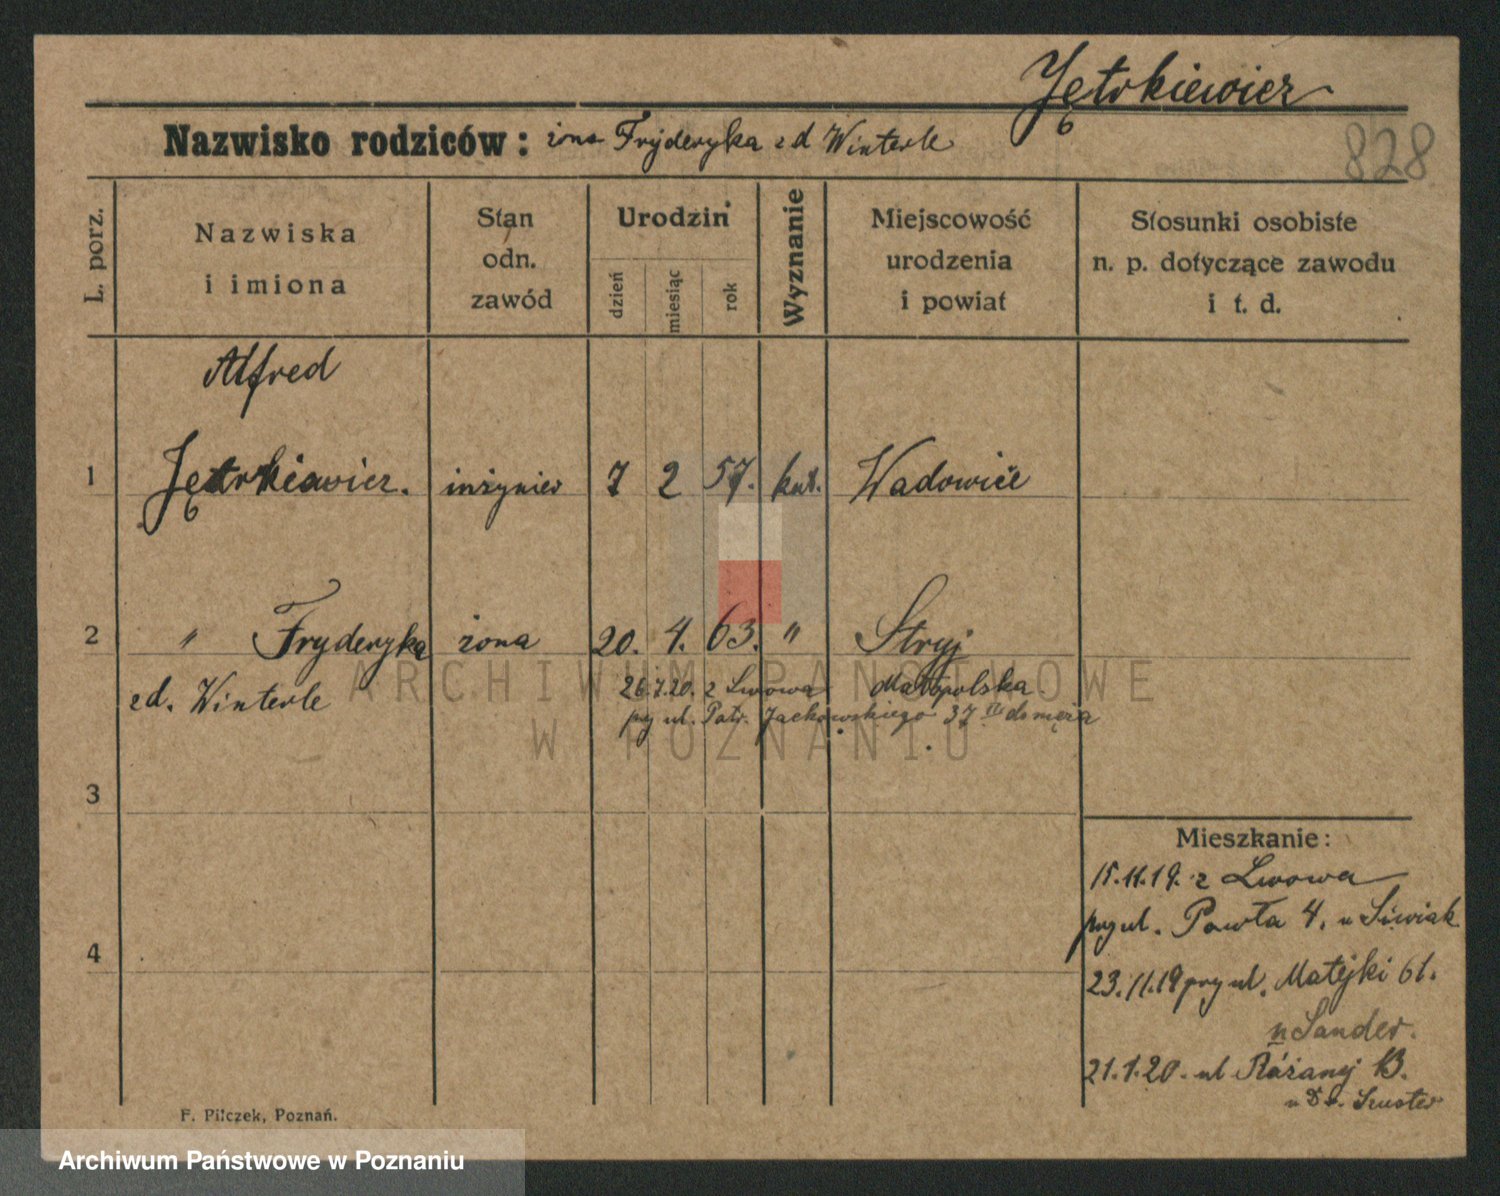 Jętrkiewicz
828
Nazwisko rodziców: żona Fryderyka zd Winterle
L. porz.
Nazwiska i imiona
Stan odn. zawód
Urodzin
dzień
miesiąc
rok
Wyznanie
Miejscowość urodzenia i powiat
Stosunki osobiste n. p. dotyczące zawodu i t. d.
Alfred
1 Jętrkiewicz. inżynier 7 2 57. kat. Wadowice
2 " Fryderyka żona 20. 4. 63. " Stryj
zd. Winterle 26.7.20. z Lwowa Małopolska
przy ul. Patr. Jackowskiego 37 II do męża
3
Mieszkanie:
15.11.19. z Lwowa
przy ul. Pawła 4. u Siwiak
4
23.11.19 przy ul. Matejki 61.
u Sander.
21.1.20. ul Różanej 13.
u Szuster
F. Pilczek, Poznań.
ARCHIWUM PAŃSTWOWE
W POZNANIU
Archiwum Państwowe w Poznaniu